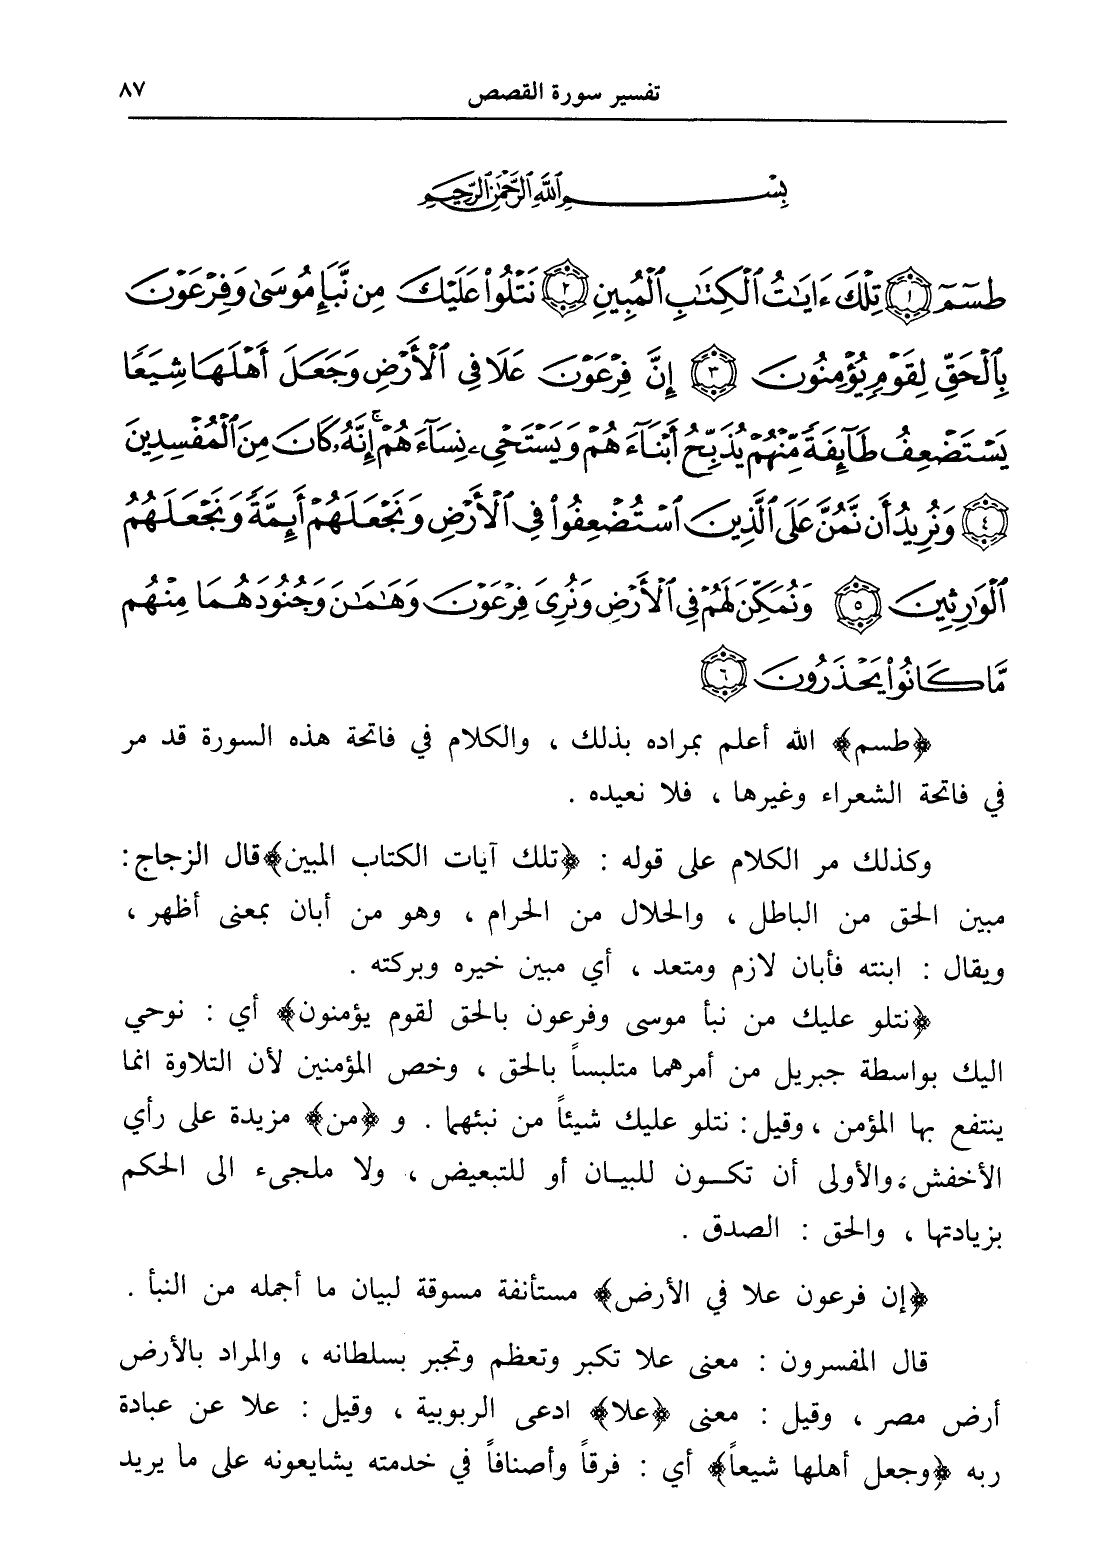 تفسير سورة القصص ٨٧
بِسْمِ اللَّهِ الرَّحْمَٰنِ الرَّحِيمِ
طسٓمٓ ﴿١﴾ تِلْكَ ءَايَٰتُ ٱلْكِتَٰبِ ٱلْمُبِينِ ﴿٢﴾ نَتْلُوا۟ عَلَيْكَ مِن نَّبَإِ مُوسَىٰ وَفِرْعَوْنَ
بِٱلْحَقِّ لِقَوْمٍ يُؤْمِنُونَ ﴿٣﴾ إِنَّ فِرْعَوْنَ عَلَا فِى ٱلْأَرْضِ وَجَعَلَ أَهْلَهَا شِيَعًا
يَسْتَضْعِفُ طَآئِفَةً مِّنْهُمْ يُذَبِّحُ أَبْنَآءَهُمْ وَيَسْتَحْىِۦ نِسَآءَهُمْ ۚ إِنَّهُۥ كَانَ مِنَ ٱلْمُفْسِدِينَ
﴿٤﴾ وَنُرِيدُ أَن نَّمُنَّ عَلَى ٱلَّذِينَ ٱسْتُضْعِفُوا۟ فِى ٱلْأَرْضِ وَنَجْعَلَهُمْ أَئِمَّةً وَنَجْعَلَهُمُ
ٱلْوَٰرِثِينَ ﴿٥﴾ وَنُمَكِّنَ لَهُمْ فِى ٱلْأَرْضِ وَنُرِىَ فِرْعَوْنَ وَهَٰمَٰنَ وَجُنُودَهُمَا مِنْهُم
مَّا كَانُوا۟ يَحْذَرُونَ ﴿٦﴾
﴿طسم﴾ الله أعلم بمراده بذلك ، والكلام في فاتحة هذه السورة قد مر
في فاتحة الشعراء وغيرها ، فلا نعيده .
وكذلك مر الكلام على قوله : ﴿تلك آيات الكتاب المبين﴾قال الزجاج:
مبين الحق من الباطل ، والحلال من الحرام ، وهو من أبان بمعنى أظهر ،
ويقال : ابنته فأبان لازم ومتعد ، أي مبين خيره وبركته .
﴿نتلو عليك من نبأ موسى وفرعون بالحق لقوم يؤمنون﴾ أي : نوحي
اليك بواسطة جبريل من أمرهما متلبساً بالحق ، وخص المؤمنين لأن التلاوة انما
ينتفع بها المؤمن ، وقيل: نتلو عليك شيئاً من نبئهما . و ﴿من﴾ مزيدة على رأي
الأخفش، والأولى أن تكون للبيان أو للتبعيض ، ولا ملجىء الى الحكم
بزيادتها ، والحق : الصدق .
﴿إن فرعون علا في الأرض﴾ مستأنفة مسوقة لبيان ما أجمله من النبأ .
قال المفسرون : معنى علا تكبر وتعظم وتجبر بسلطانه ، والمراد بالأرض
أرض مصر ، وقيل : معنى ﴿علا﴾ ادعى الربوبية ، وقيل : علا عن عبادة
ربه ﴿وجعل أهلها شيعاً﴾ أي : فرقاً وأصنافاً في خدمته يشايعونه على ما يريد